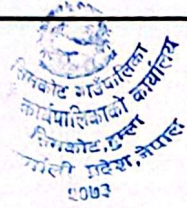 सिमकोट गाउँपालिका
कार्यपालिकाको कार्यालय
सिमकोट, हुम्ला
कर्णाली प्रदेश, नेपाल
२०७३